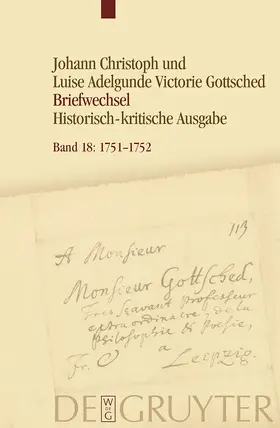 Johann Christoph und
Luise Adelgunde Victorie Gottsched
Briefwechsel
Historisch-kritische Ausgabe
Band 18: 1751–1752
113
A Monsieur
Monsieur Gottsched,
Tres Scavant Professeur
extraordinaire, de la
Philosophie & Poësie,
Fr. à Leipzig.
DE GRUYTER